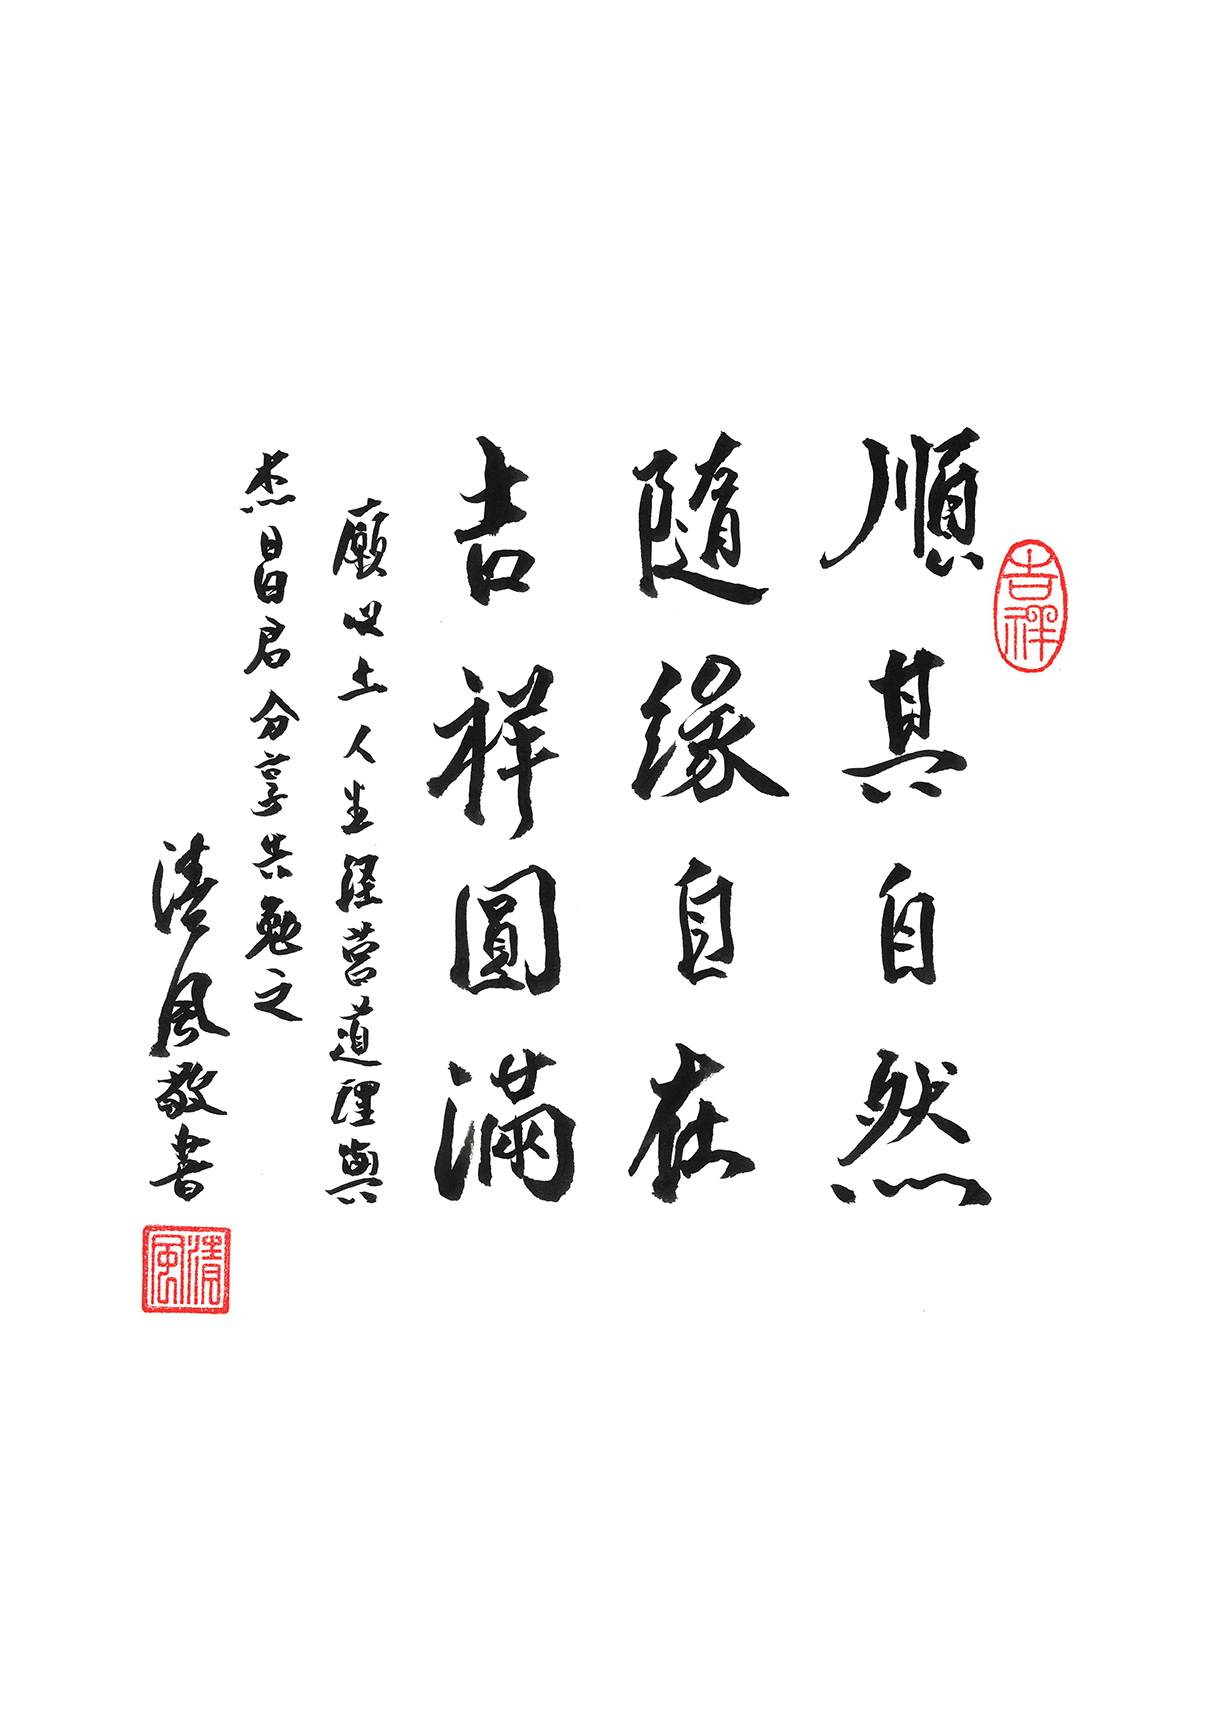 吉祥
順其自然
隨緣自在
吉祥圓滿
願以上人生經營道理與
杰昌君分享共勉之
清風敬書
清風